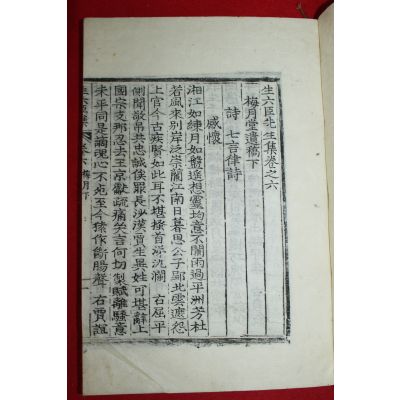 生六臣先生集卷之六
梅月堂遺稿下
詩 七言律詩
感懷
湘江如練月如盤遙想靈均意不闌雨過平洲芳杜
若風來別岸泛崇蘭江南日暮思公子郢北雲遮怨
上官今古疾賢如此耳不堪搔首淚汍瀾 右屈平
側聞敞帚共忠誠俟罪長沙漢賈生異姓可堪辭上
國宗支那忍去王京獻疏痛哭言何切製賦離騷意
未平同是謫魂心不死至今猿作斷腸聲 右賈誼
生六臣集 卷六 梅月下 一